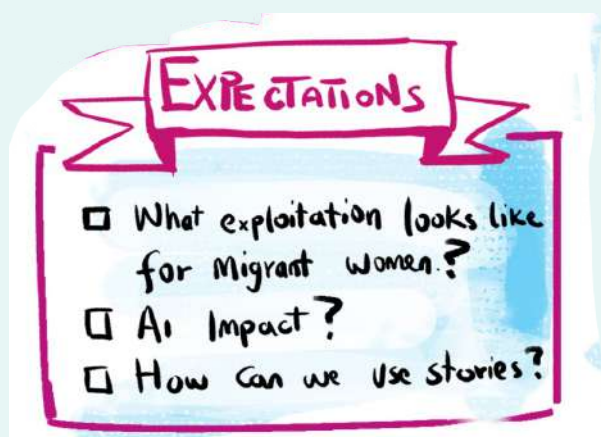 EXPECTATIONS
☐ What exploitation looks like
for Migrant women.?
☐ AI Impact?
☐ How can we use stories?